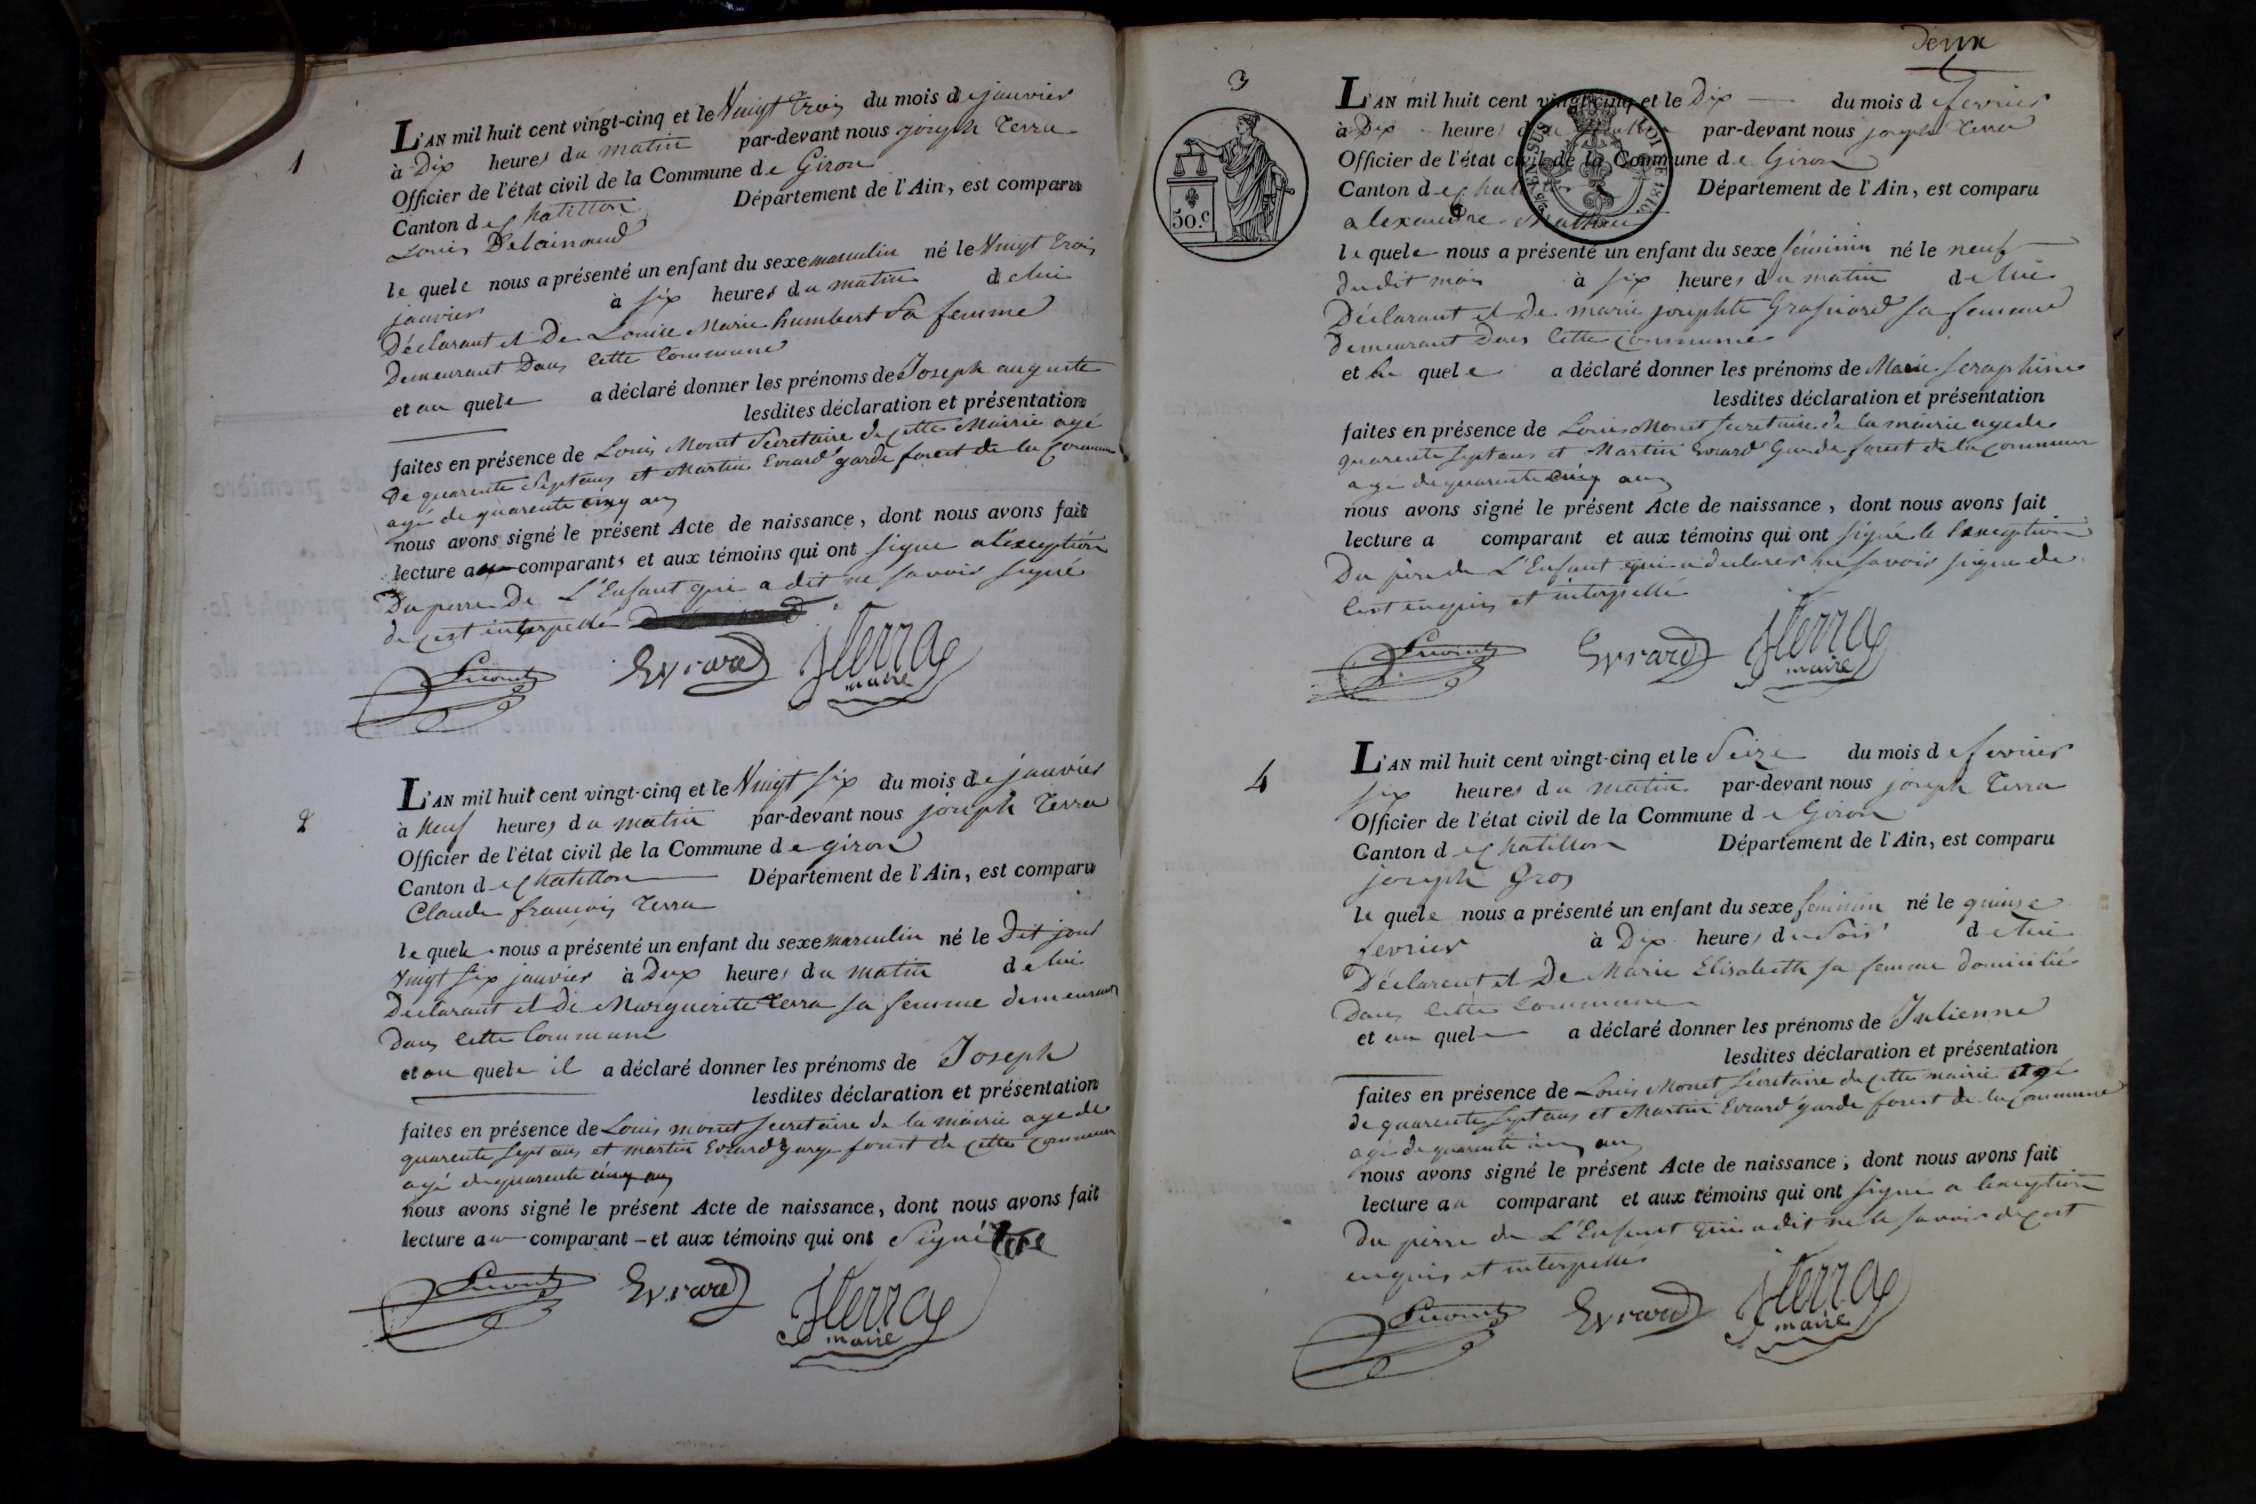 1
L'AN mil huit cent vingt-cinq et le Vingt trois du mois de janvier
à Dix heures du matin par-devant nous joseph Terra
Officier de l'état civil de la Commune de Giron
Canton de Chatillon Département de l'Ain, est comparu
Louis
le quele nous a présenté un enfant du sexe masculin né le Vingt trois
janvier à six heures du matin de lui
Déclarant et De Louise Marie humbert Sa femme
Demeurant Dans cette Commune
et au quele a déclaré donner les prénoms de Joseph auguste
lesdites déclaration et présentation
faites en présence de Louis Monet Secretaire de cette Mairie agé
de quarente Sept ans et Martin Evrard garde forest de la Commune
agé de quarente cinq ans
nous avons signé le présent Acte de naissance, dont nous avons fait
lecture au comparants et aux témoins qui ont signé a lexception
Du perre De L'Enfant qui a dit ne savoir signé
de cest interpellé
Evrard JTerra
maire
2
L'AN mil huit cent vingt-cinq et le Vingt six du mois de janvier
à neuf heures du matin par-devant nous joseph Terra
Officier de l'état civil de la Commune de giron
Canton de Chatillon Département de l'Ain, est comparu
Claude françois Terra
le quele nous a présenté un enfant du sexe masculin né le Dit jour
vingt six janvier à Deux heures du matin de lui
Declarant et de Marguerite Terra sa femme demeurant
dans cette Commune
et au quele il a déclaré donner les prénoms de Joseph
lesdites déclaration et présentation
faites en présence de Louis monet secretaire de la mairie age de
quarente sept ans et martin Evrard garge forest de cette commune
agé de quarente cinq ans
nous avons signé le présent Acte de naissance, dont nous avons fait
lecture au comparant et aux témoins qui ont Signé
Evrard JTerra
maire
Deux
3
50.c
L'AN mil huit cent vingt-cinq et le Dix du mois de fevrier
à Dix heures du matin par-devant nous joseph Terra
Officier de l'état civil de la Commune de Giron
Canton de Département de l'Ain, est comparu
EN SUS LOI DE 1816.
alexandre
le quele nous a présenté un enfant du sexe féminin né le neuf
dudit mois à six heures du matin de lui
Déclarant et De marie josephte Grasnard sa femme
Demeurant Dans Cette Commune
et quele a déclaré donner les prénoms de Marie seraphine
lesdites déclaration et présentation
faites en présence de Louis Monet secretaire de la mairie age de
quarente sept ans et Martin Evrard Garde forest de la commune
agé de quarente cinq ans
nous avons signé le présent Acte de naissance, dont nous avons fait
lecture a comparant et aux témoins qui ont signé le lexception
Du pere de L'Enfant qui a declarer ne savoir signer de
enquis et interpellé
Evrard JTerra
maire
4
L'AN mil huit cent vingt-cinq et le Seize du mois de fevrier
six heures du matin par-devant nous joseph Terra
Officier de l'état civil de la Commune de Giron
Canton de Chatillon Département de l'Ain, est comparu
joseph Gros
le quele nous a présenté un enfant du sexe feminin né le quinse
fevrier à Dix heures du Soir de lui
Déclarent et De Marie Elisabeth sa femme domicilié
Dans cette Commune
et au quele a déclaré donner les prénoms de Julienne
lesdites déclaration et présentation
faites en présence de Louis Monet Secretaire de cette mairie agé
de quarente sept ans et Martin Evrard garde forest de la Commune
agé de quarente cinq ans
nous avons signé le présent Acte de naissance, dont nous avons fait
lecture au comparant et aux témoins qui ont signé a lexception
Du perre de L'Enfant qui a dit ne le savoir de cest
enquis et interpellé
Evrard JTerra
maire